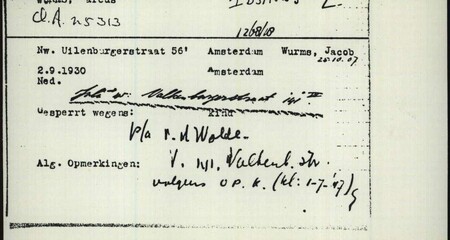 Cl.A. 25313
12/8/18
Nw. Uilenburgerstraat 56' Amsterdam Wurms, Jacob
25.10.07
2.9.1930 Amsterdam
Ned.
Valkenburgerstraat
Gesperrt wegens: kind
p/a v. d Wolde
Alg. Opmerkingen: V. Valkenb. str.
volgens O P. K. (kl: 1-7-'47)